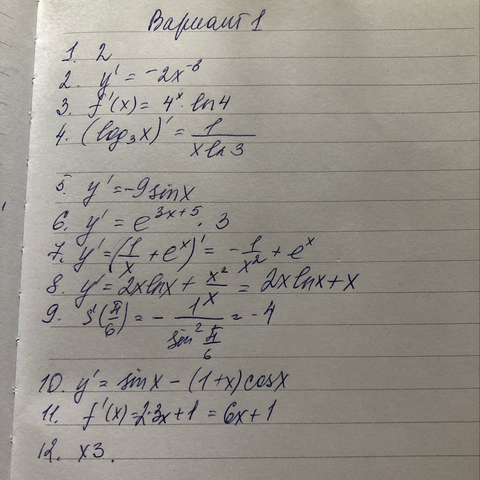 Вариант 1
1. 2
2. y' = -2x⁻³
3. f'(x) = 4ˣ · ln4
4. (log₃x)' = 1/(x ln3)
5. y' = -9sinx
6. y' = e³ˣ⁺⁵ · 3
7. y' = (1/x + eˣ)' = -1/x² + eˣ
8. y' = 2xlnx + x²/x = 2xlnx + x
9. f'(π/6) = - 1/(sin² π/6) = -4
10. y' = sinx - (1+x)cosx
11. f'(x) = 2·3x + 1 = 6x + 1
12. x3.